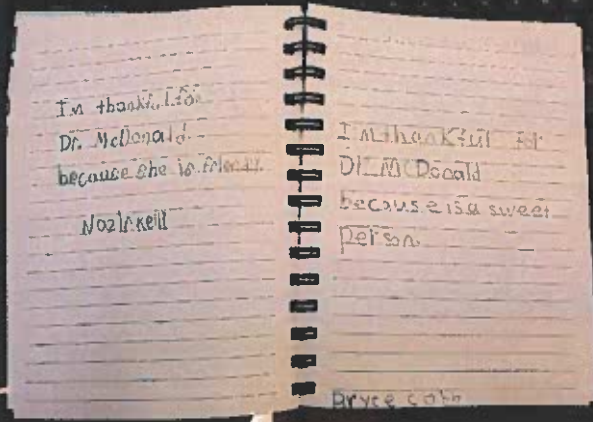 I'm thankful for
Dr. McDonald
because she is friendly.
I'm thankful for
Dr. McDonald
because is a sweet
person.
Bryce Cobb